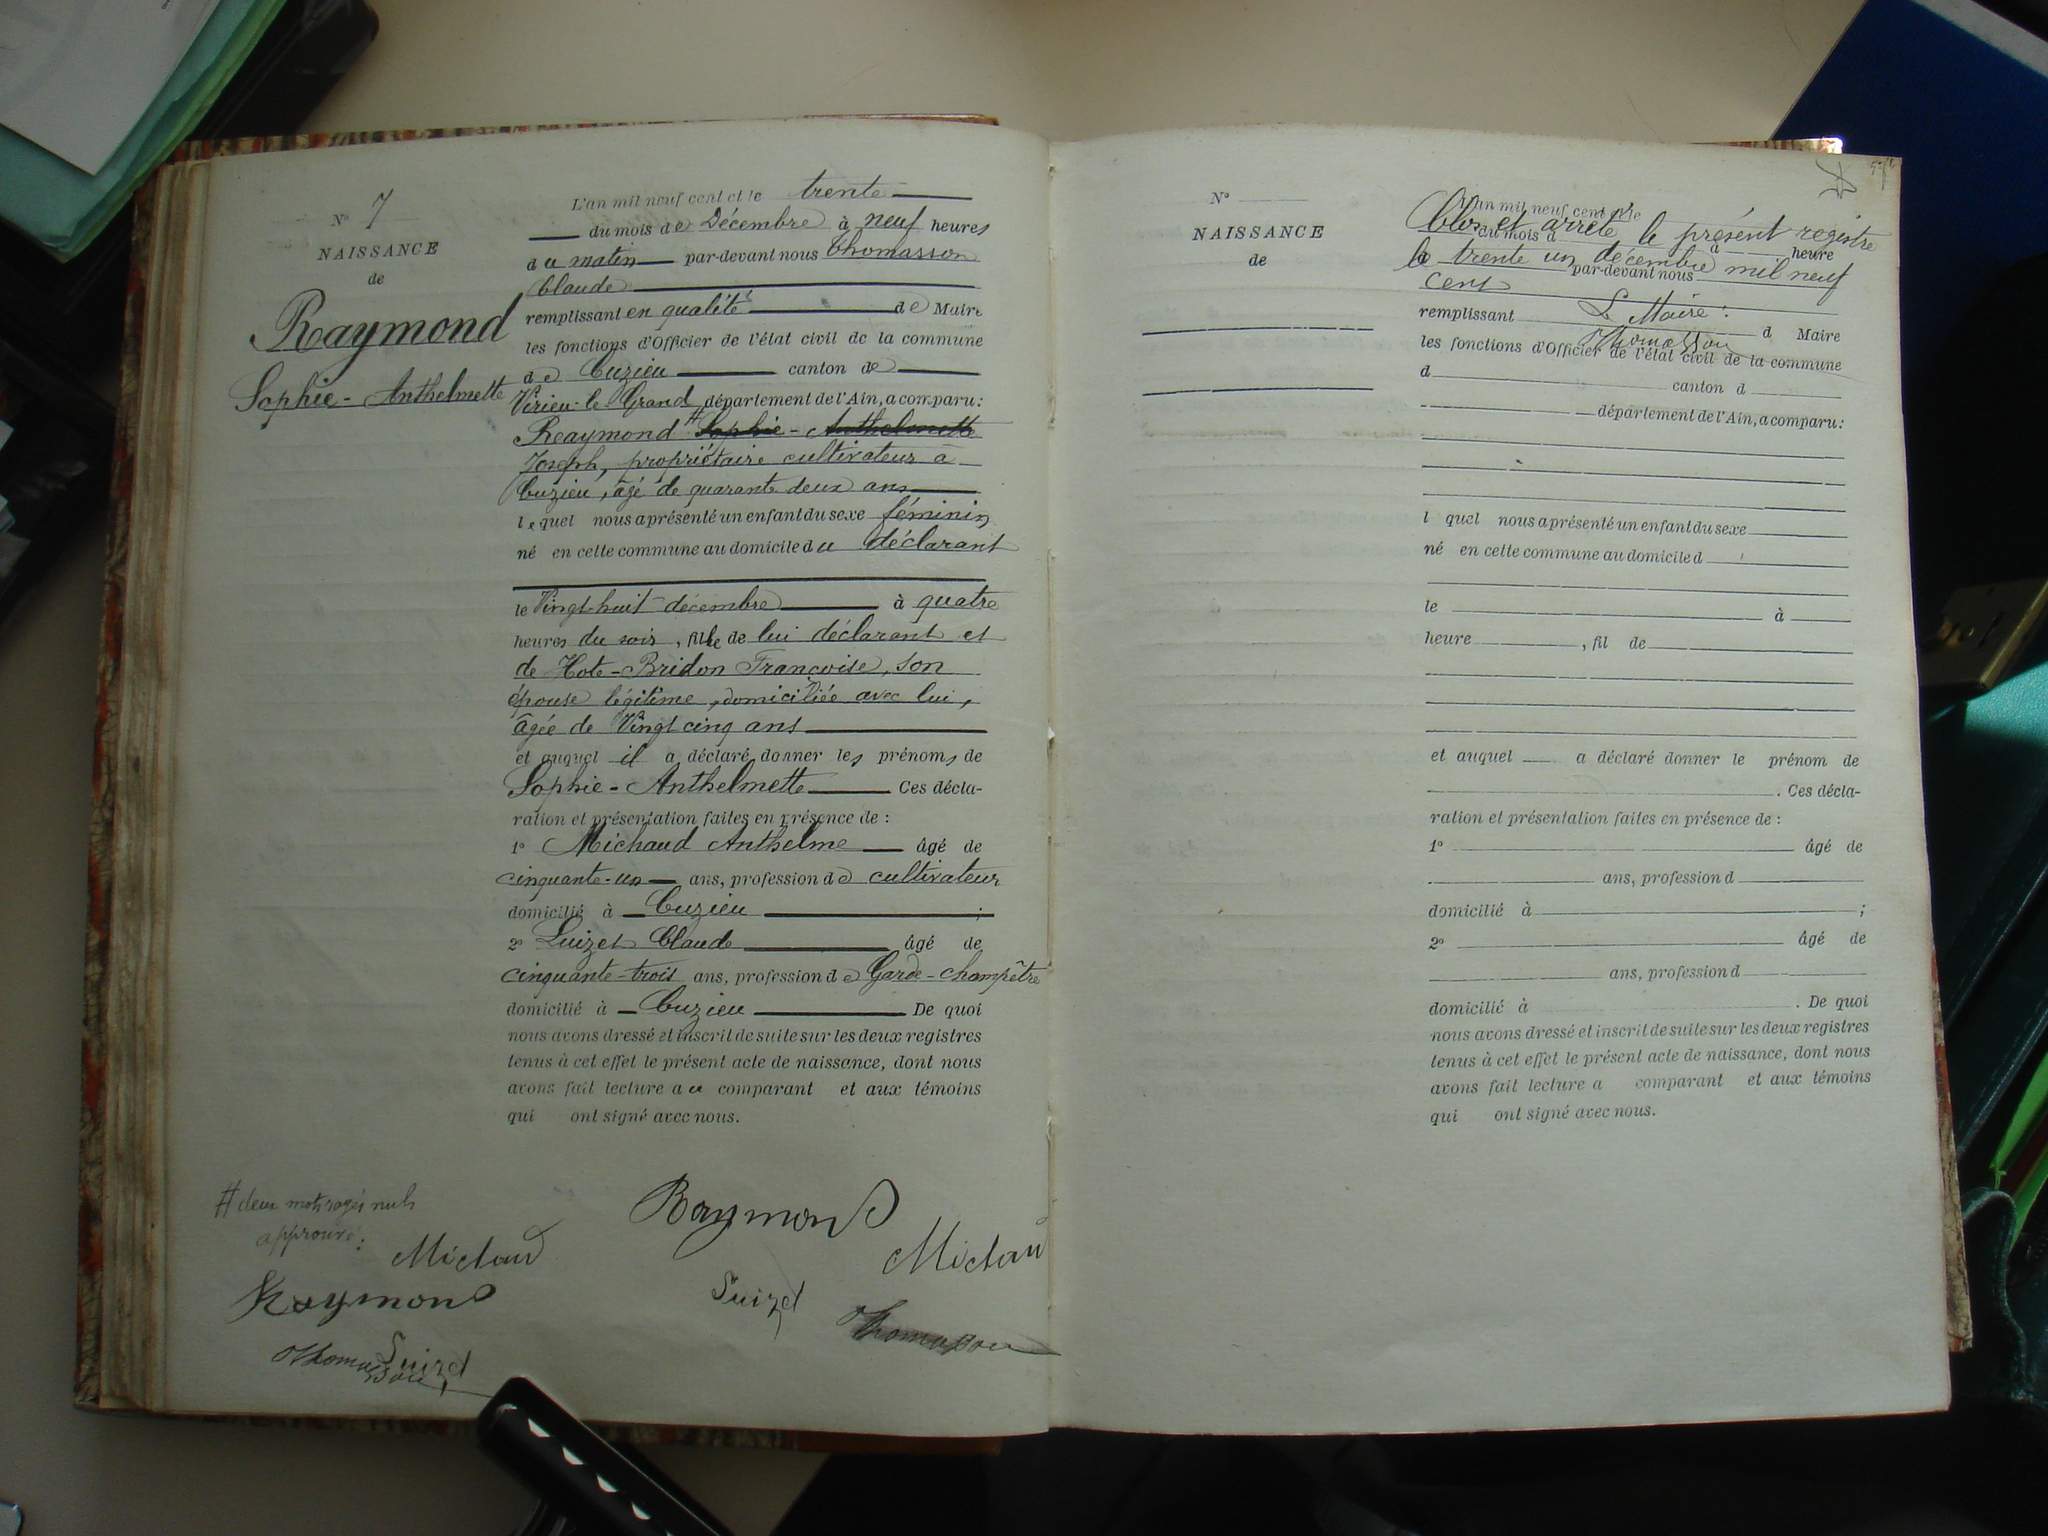 N° 7
NAISSANCE
de
Raymond
Sophie - Anthelmette
L'an mil neuf cent et le trente
du mois de Décembre à neuf heures
du matin par-devant nous Thomasson
Claude
remplissant en qualité de Maire
les fonctions d'Officier de l'état civil de la commune
de Cuzieu canton de
Virieu-le-Grand, département de l'Ain, a comparu:
Raymond # Sophie - Anthelmette
Joseph, propriétaire cultivateur à
Cuzieu, âgé de quarante deux ans
lequel nous a présenté un enfant du sexe féminin
né en cette commune au domicile du déclarant
le Vingt-huit décembre à quatre
heures du soir, fille de lui déclarant et
de Hote-Bridon Françoise, son
épouse légitime, domiciliée avec lui,
âgée de Vingt cinq ans
et auquel il a déclaré donner les prénoms de
Sophie - Anthelmette Ces décla-
ration et présentation faites en présence de :
1° Michaud Anthelme âgé de
cinquante-un ans, profession de cultivateur
domicilié à Cuzieu ;
2° Luizet Claude âgé de
cinquante-trois ans, profession de Garde-champêtre
domicilié à Cuzieu De quoi
nous avons dressé et inscrit de suite sur les deux registres
tenus à cet effet le présent acte de naissance, dont nous
avons fait lecture au comparant et aux témoins
qui ont signé avec nous.
# deux mots rayés nuls
approuvé :
Michaud
Raymond
Luizet
Thomasson
Raymond
Michaud
Luizet
Thomasson
N°
NAISSANCE
de
L'an mil neuf cent et le
Clos et arrêté le présent registre
du mois d à heure
le trente un décembre mil neuf
d par-devant nous
cent
Le Maire :
remplissant d Maire
Thomasson
les fonctions d'Officier de l'état civil de la commune
d canton d
département de l'Ain, a comparu:
l quel nous a présenté un enfant du sexe
né en cette commune au domicile d
le à
heure , fil de
et auquel a déclaré donner le prénom de
. Ces décla-
ration et présentation faites en présence de :
1° âgé de
ans, profession d
domicilié à ;
2° âgé de
ans, profession d
domicilié à . De quoi
nous avons dressé et inscrit de suite sur les deux registres
tenus à cet effet le présent acte de naissance, dont nous
avons fait lecture a comparant et aux témoins
qui ont signé avec nous.